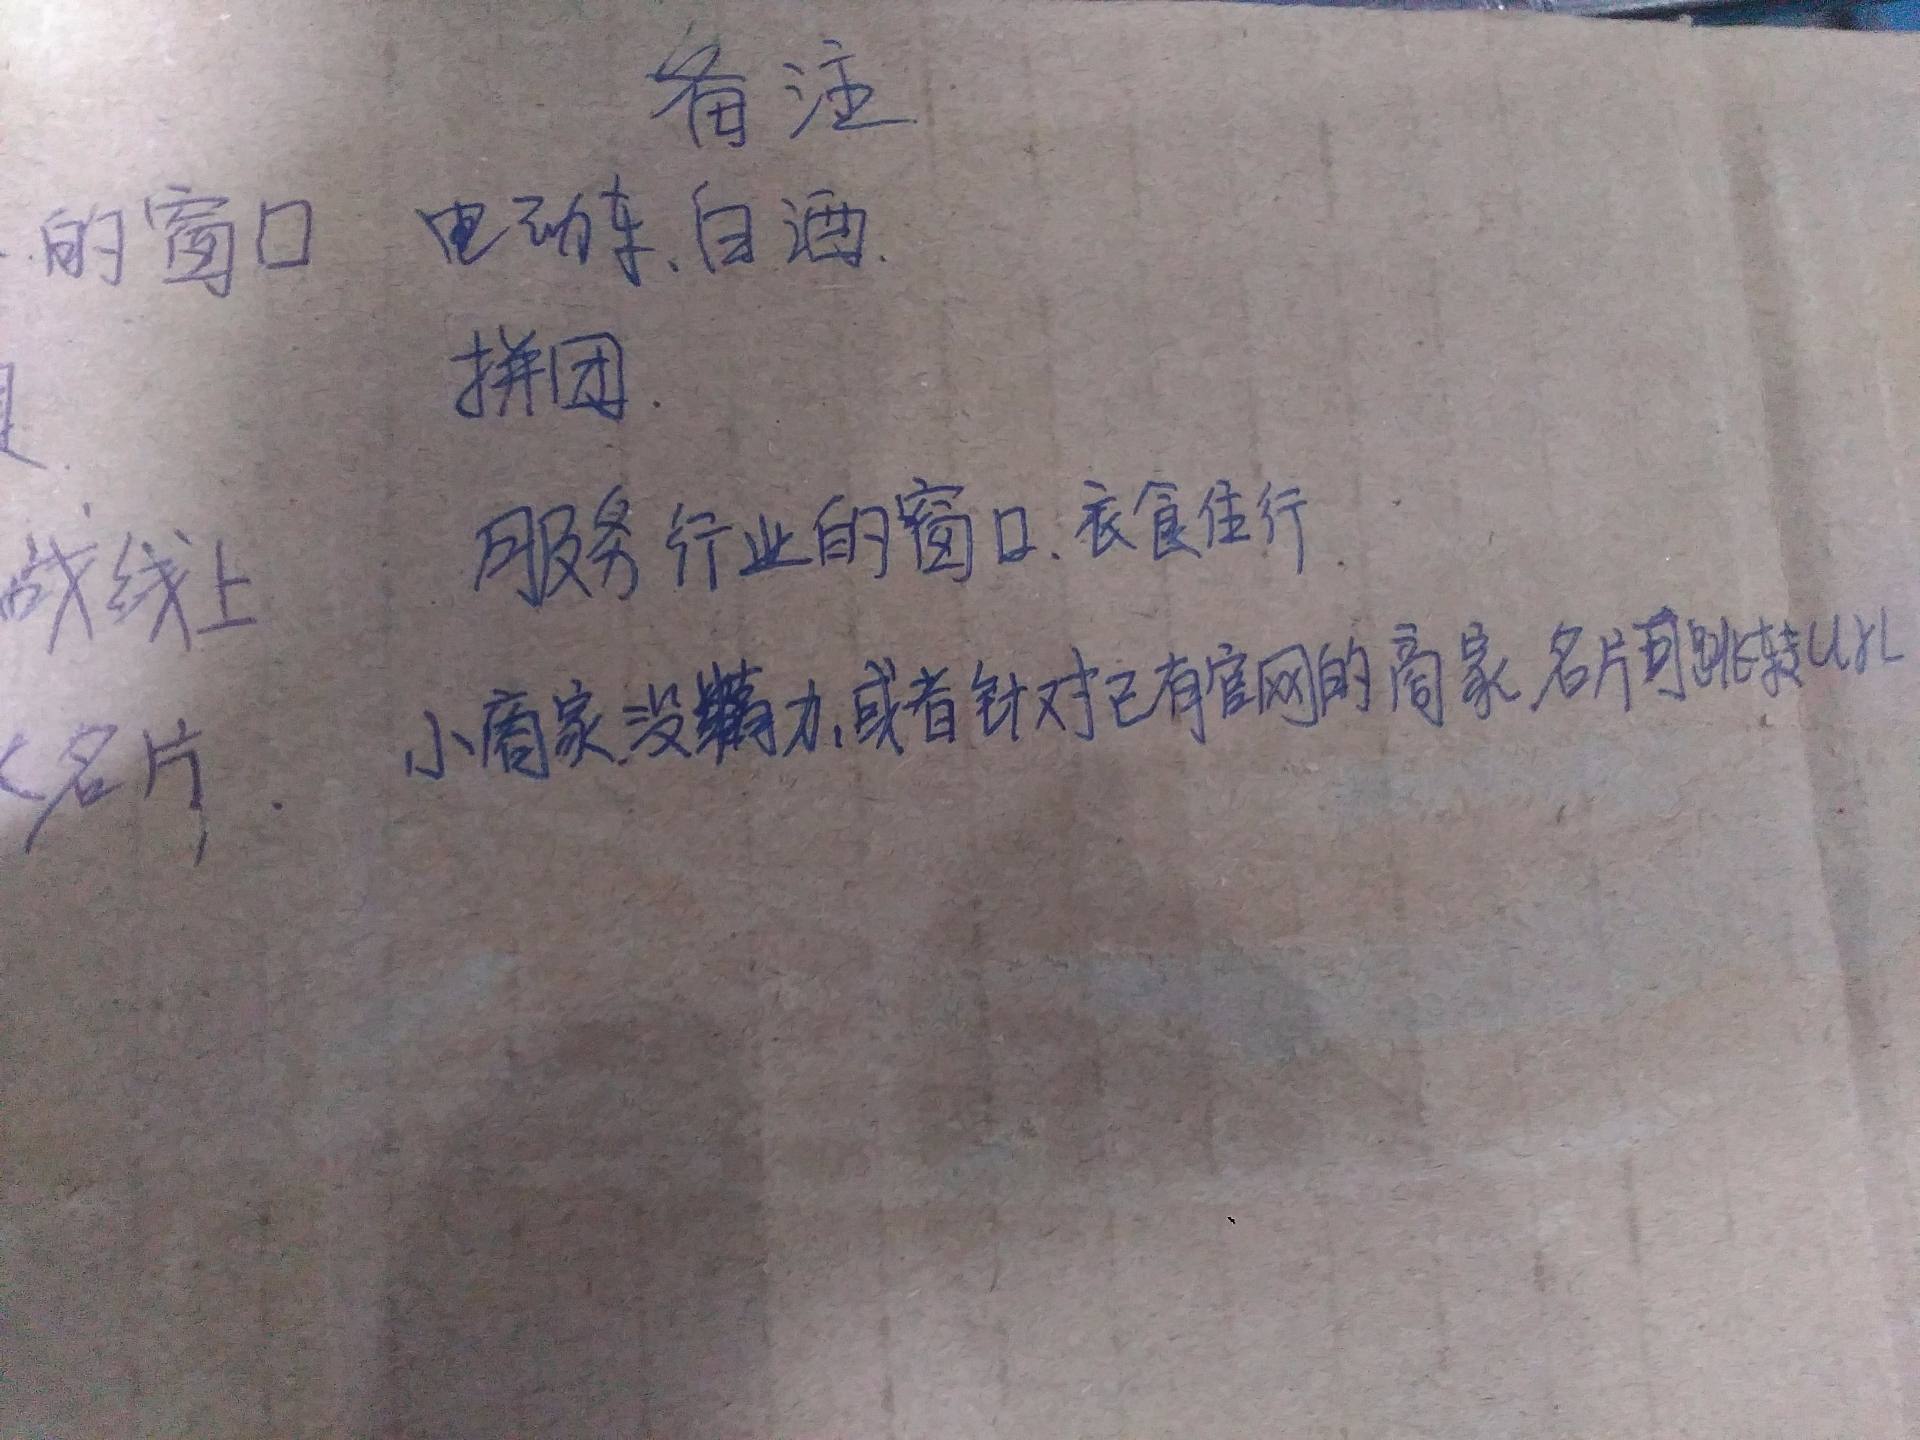 备注
的窗口 电动车、白酒.
拼团.
战线上 服务行业的窗口、衣食住行.
名片. 小商家没精力,或者针对已有官网的商家 名片可跳转url